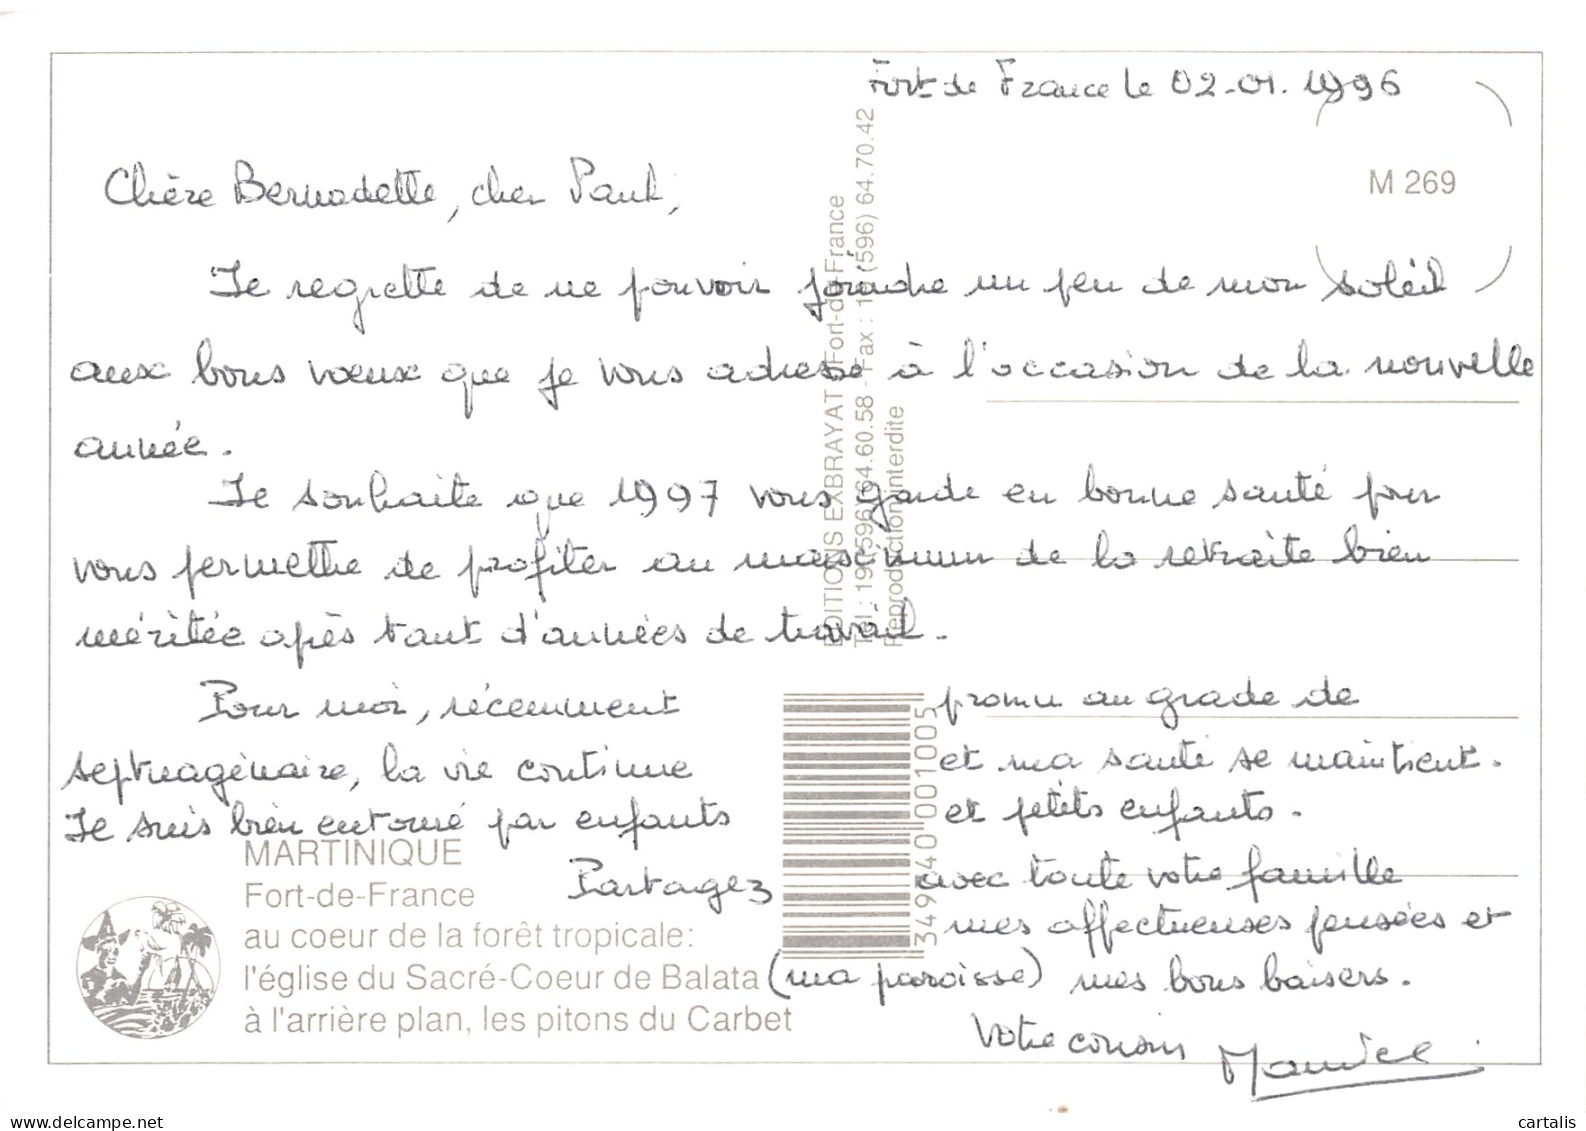 Fort de France le 02-01.1996
M 269
Chère Bernadette, cher Paul,
Je regrette de ne pouvoir joindre un peu de mon soleil
aux bons vœux que je vous adresse à l'occasion de la nouvelle
année.
Je souhaite que 1997 vous garde en bonne santé pour
vous permettre de profiter au maximum de la retraite bien
méritée après tant d'années de travail.
Pour moi, récemment promu au grade de
septuagénaire, la vie continue et ma santé se maintient.
Je suis bien entouré par enfants et petits enfants.
Partagez avec toute votre famille
mes affectueuses pensées et
(ma paroisse) mes bons baisers.
Votre cousin Maurice
EDITIONS EXBRAYAT Fort-de-France
Tél : 19 (596) 64.60.58 - Fax : 19 (596) 64.70.42
Reproduction interdite
3494040001005
MARTINIQUE
Fort-de-France
au coeur de la forêt tropicale:
l'église du Sacré-Coeur de Balata
à l'arrière plan, les pitons du Carbet
delcampe.net
cartalis